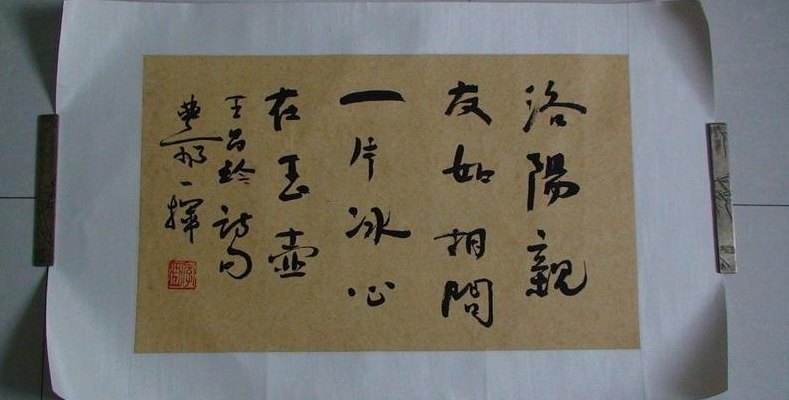 洛陽親
友如相問
一片冰心
在玉壺
王昌龄詩句
一揮